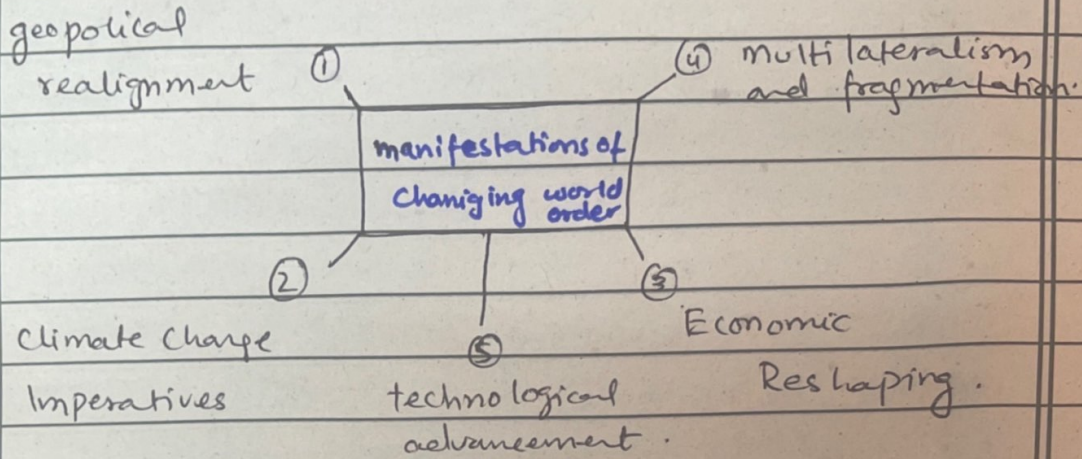 geopolical
realignment
①
④ multilateralism
and fragmentation.
manifestations of
Chaniging world
order
②
③
Climate Change
Imperatives
⑤
technological
advancement.
Economic
Reshaping.